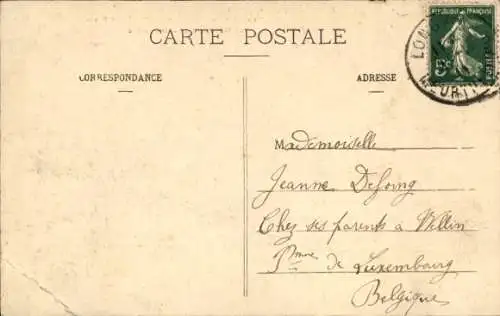 CARTE POSTALE
CORRESPONDANCE
ADRESSE
REPUBLIQUE FRANÇAISE
5c
LON
MEURTHE
Mademoiselle
Jeanne Defoing
Chez ses parents à Wellin
de Luxembourg
Belgique